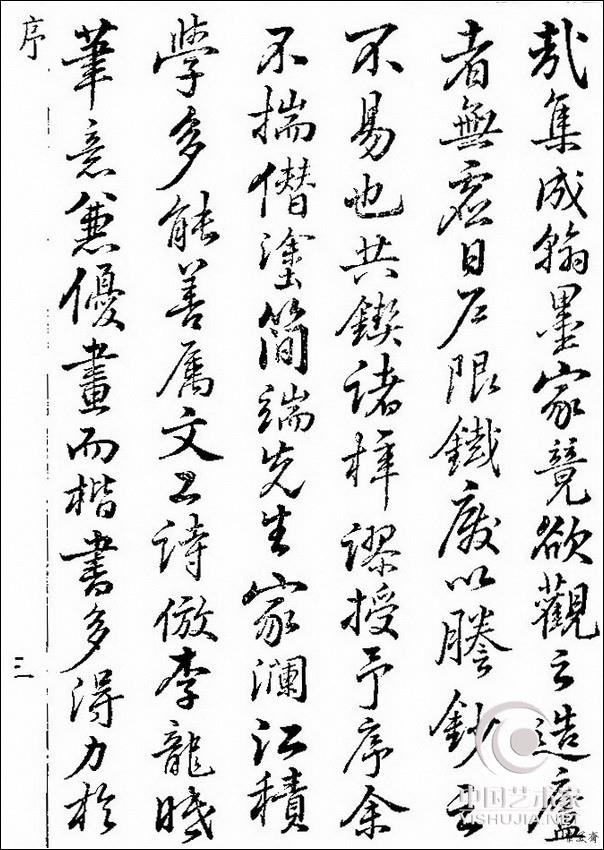 哉集成翰墨家競欲觀之造廬
者無虛日戶限鐵廢以謄鈔之
不易也共鍥諸梓謬授予序余
不揣僭塗簡端先生家瀾江積
學多能善属文工詩倣李龍眠
筆意兼優畫而楷書多得力於
序
三
中国艺术家
YISHUJIA.NET